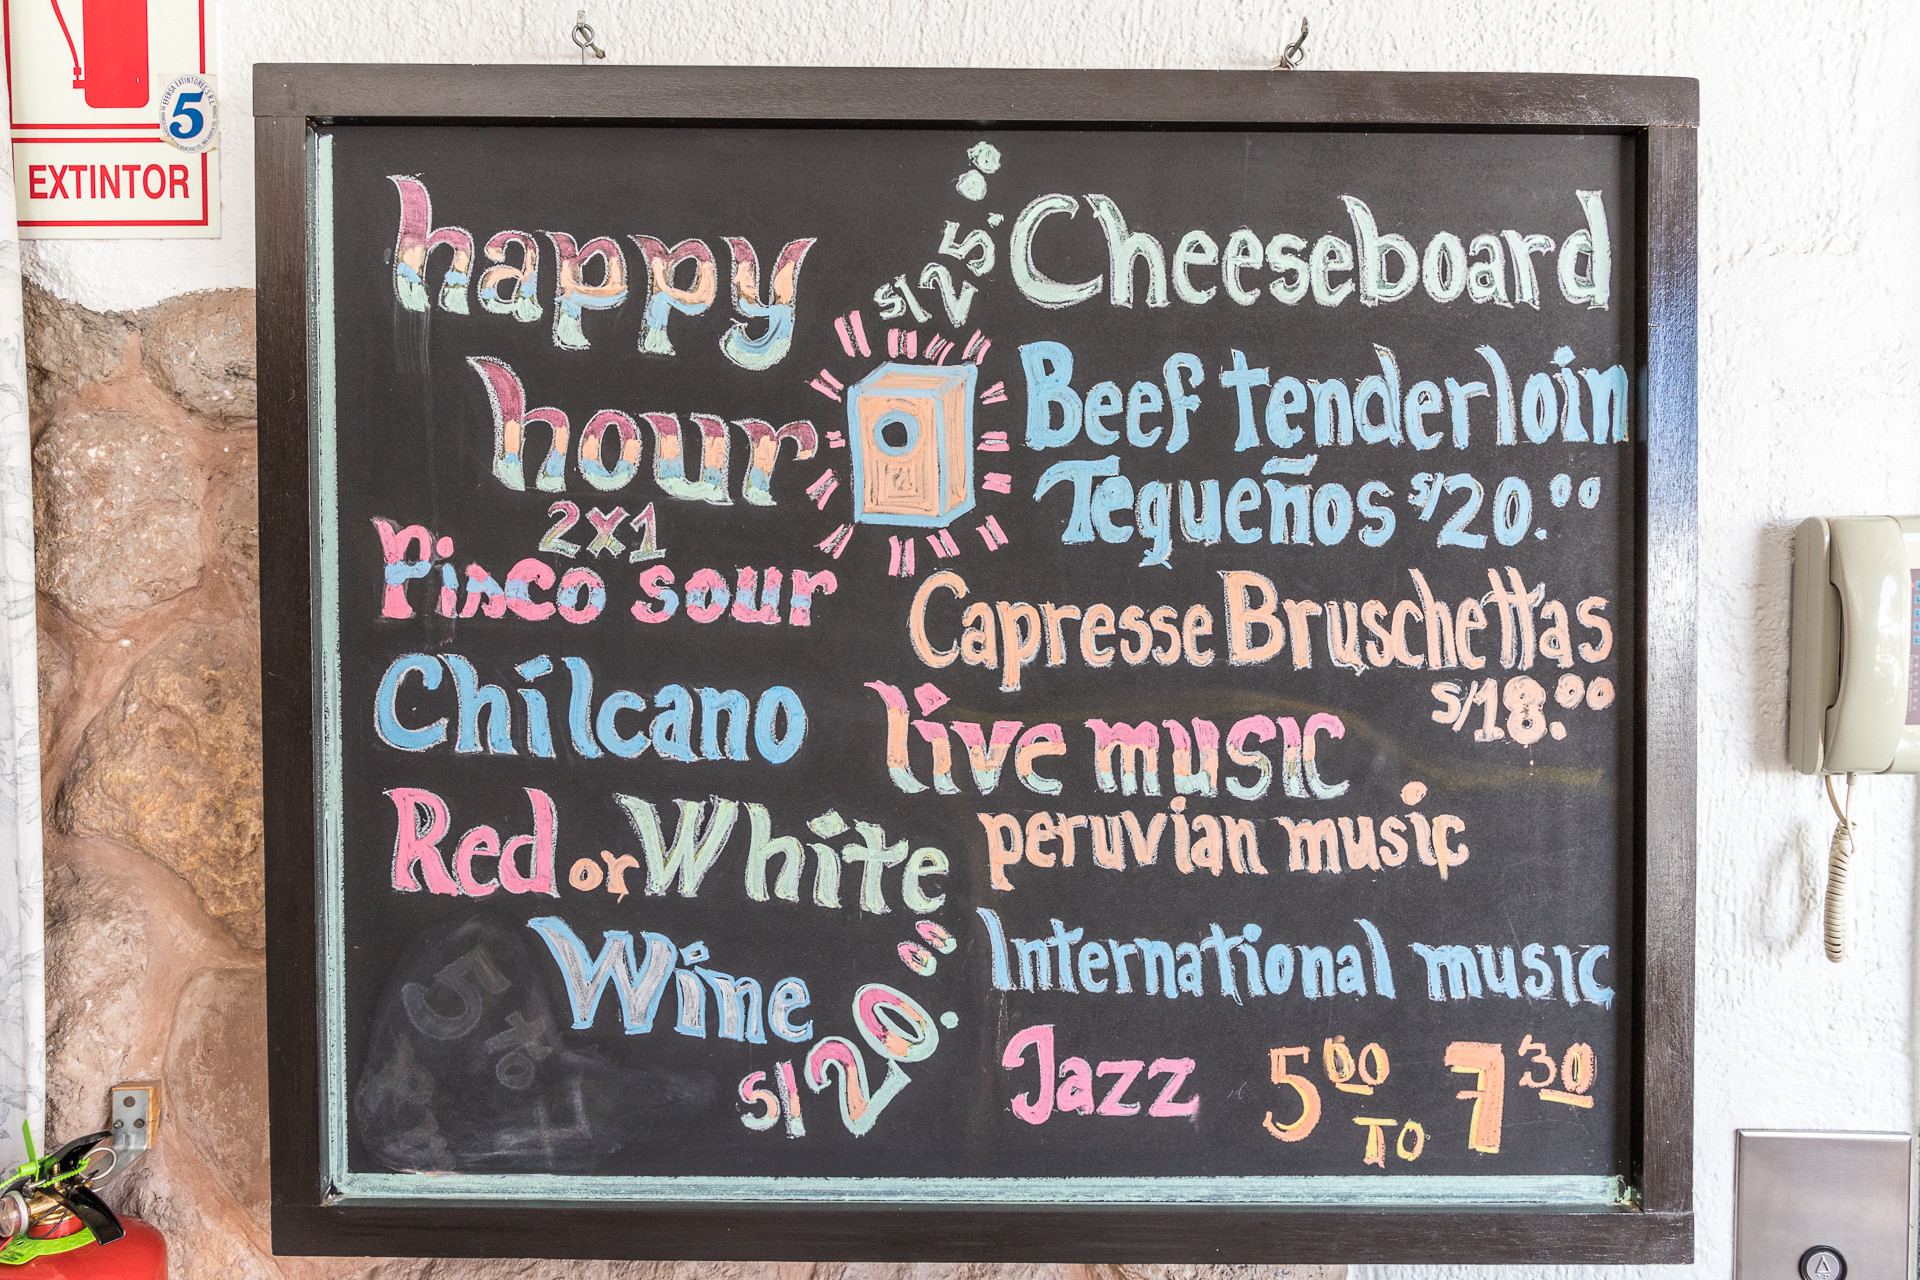 EXTINTOR
5
happy
hour
2x1
Pisco sour
Chilcano
Red or White
Wine
s/20.00
s/25.00
Cheeseboard
Beef tenderloin
Tequeños s/20.00
Capresse Bruschettas
s/18.00
live music
peruvian music
International music
Jazz 5 00 TO 7 30